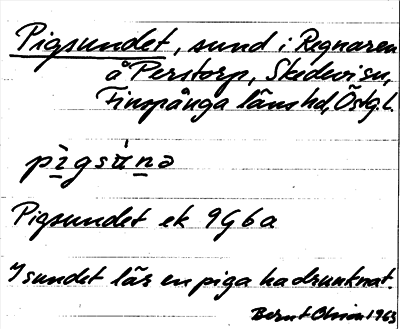 Pigsundet, sund i Regnaren
å Perstorp, Skedevi sn,
Finspånga läns hd, Östg. l.
Pigsundet ek 9G 6a
I sundet lär en piga ha drunknat.
Bernt Olsson 1963